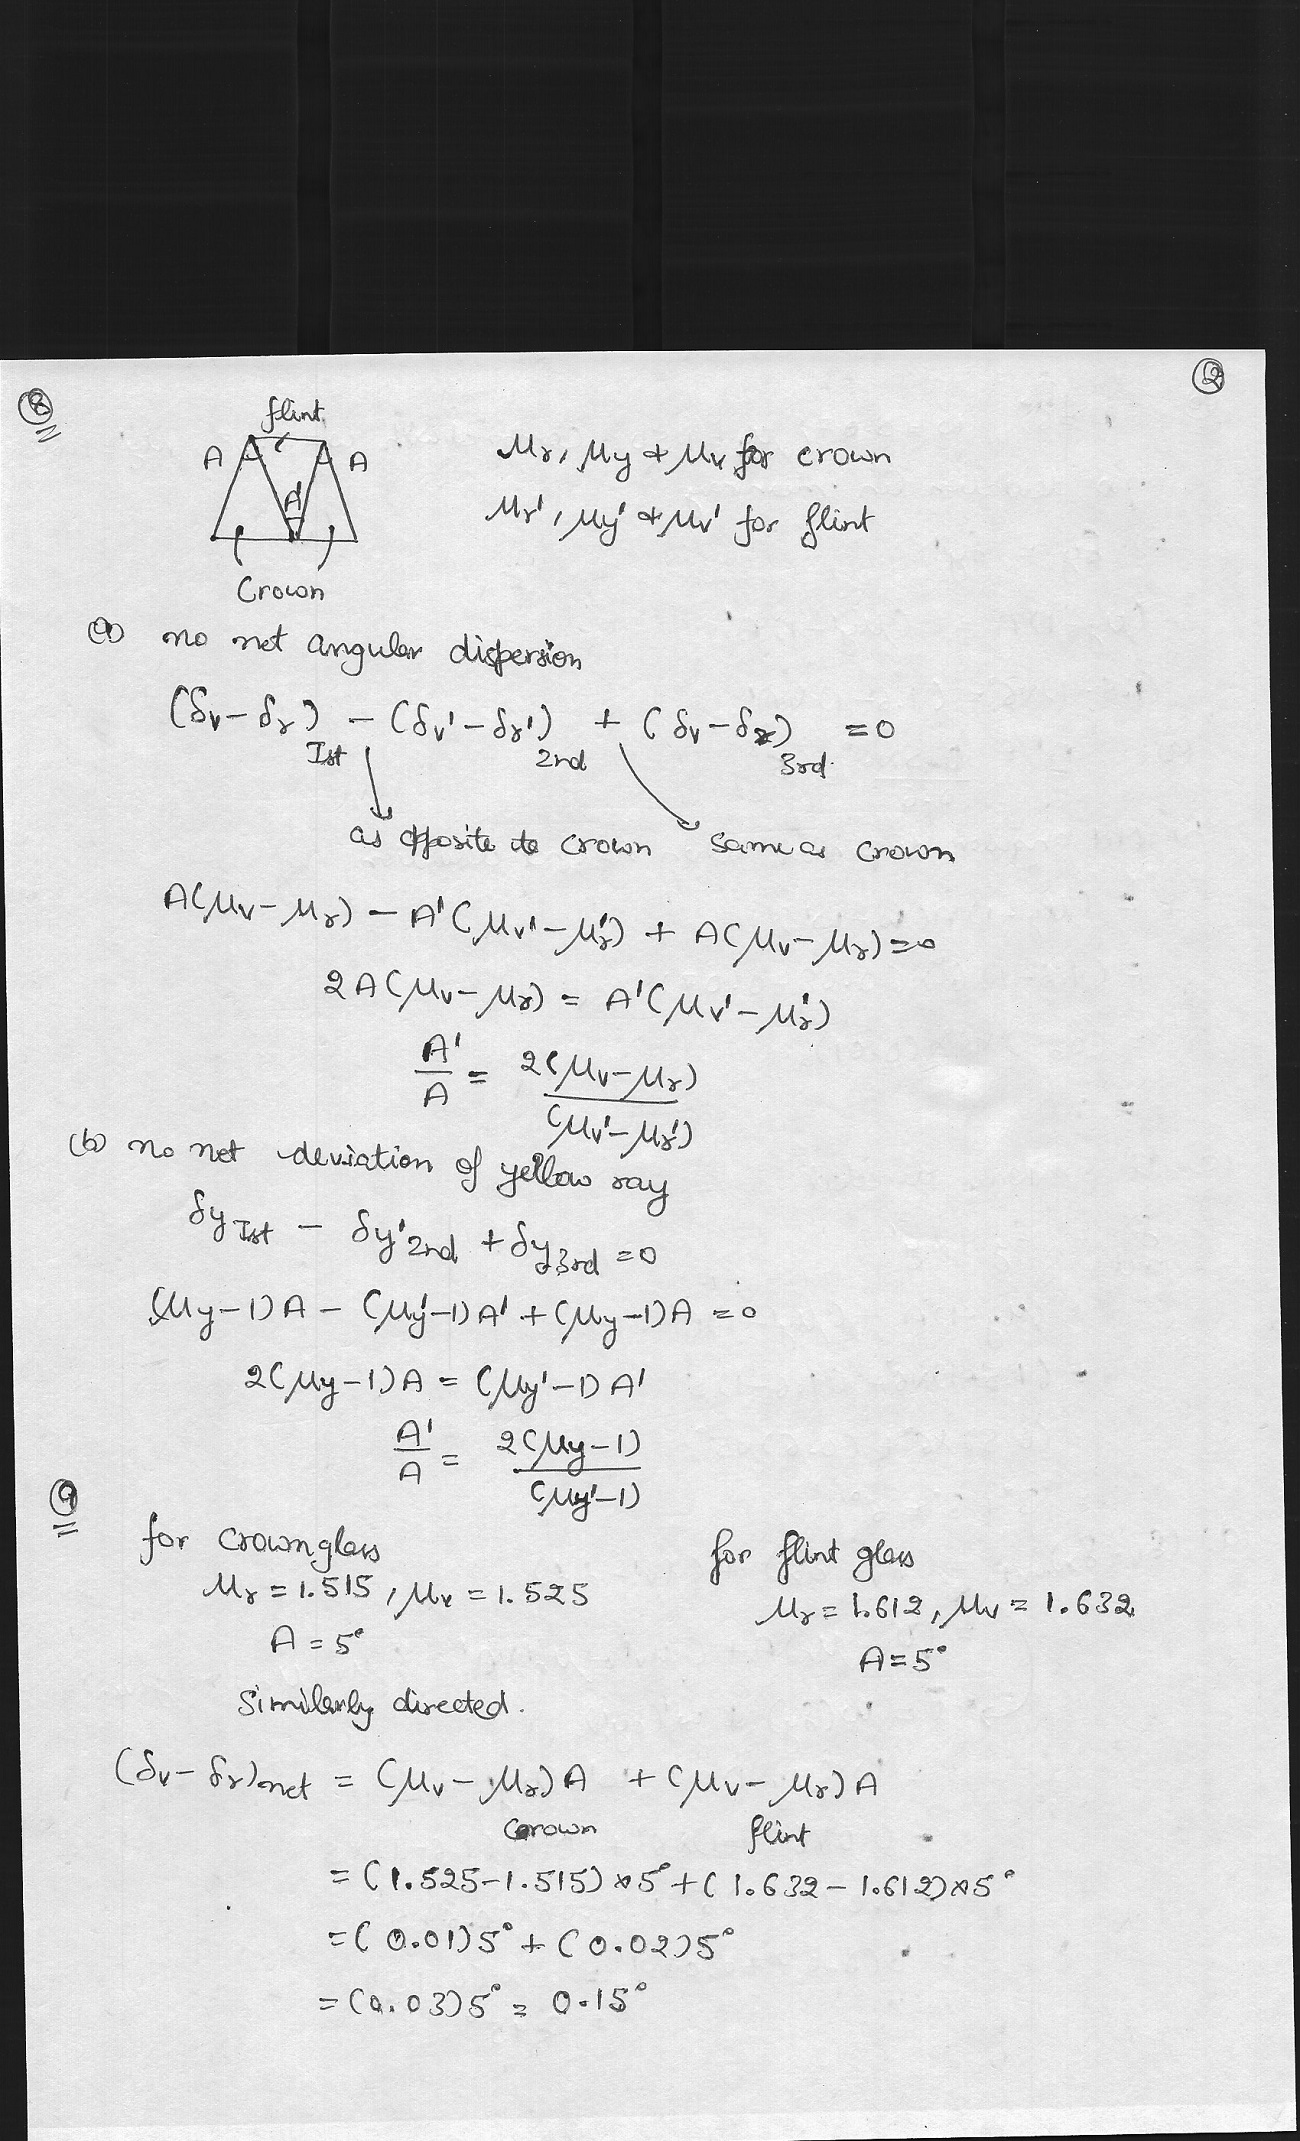 ②
⑧
flint
A A
A'
Crown
μr, μy & μv for crown
μr', μy' & μv' for flint
(a) no net angular dispersion
(δv-δr)Ist - (δv'-δr')2nd + (δv-δr)3rd = 0
as opposite to crown same as crown
A(μv-μr) - A'(μv'-μr') + A(μv-μr)=0
2A(μv-μr) = A'(μv'-μr')
A'/A = 2(μv-μr)/(μv'-μr')
(b) no net deviation of yellow ray
δy Ist - δy' 2nd + δy 3rd = 0
(μy-1)A - (μy'-1)A' + (μy-1)A = 0
2(μy-1)A = (μy'-1)A'
A'/A = 2(μy-1)/(μy'-1)
⑨
for crown glass
μr = 1.515, μv = 1.525
A = 5°
for flint glass
μr = 1.612, μv = 1.632
A = 5°
Similarly directed.
(δv-δr)net = (μv-μr)A + (μv-μr)A
crown flint
= (1.525-1.515)×5°+(1.632-1.612)×5°
=(0.01)5°+(0.02)5°
=(0.03)5° = 0.15°